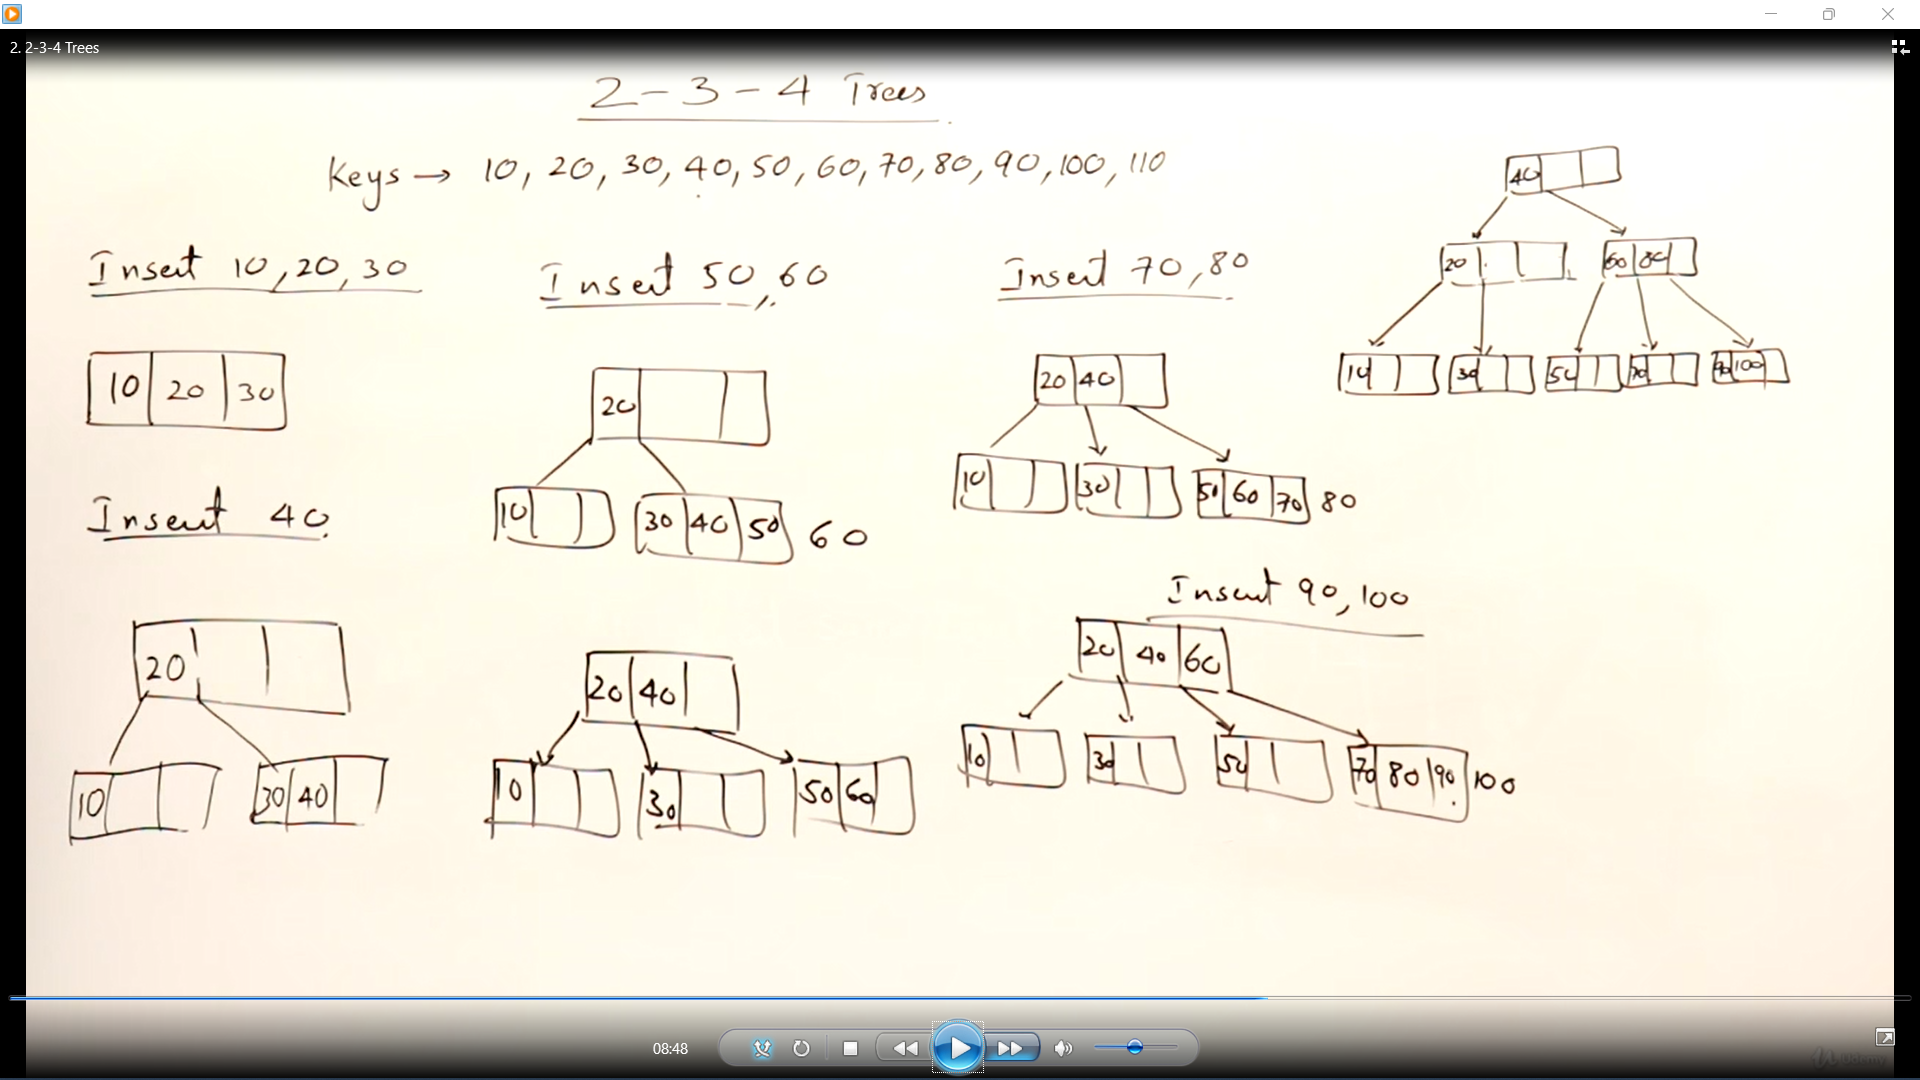 2. 2-3-4 Trees
2-3-4 Trees
Keys → 10, 20, 30, 40, 50, 60, 70, 80, 90, 100, 110
Insert 10, 20, 30
10 20 30
Insert 40
20
10 30 40
Insert 50, 60
20
10 30 40 50 60
20 40
10 30 50 60
Insert 70, 80
20 40
10 30 50 60 70 80
Insert 90, 100
20 40 60
10 30 50 70 80 90 100
40
20 60 80
10 30 50 70 90 100
08:48
udemy